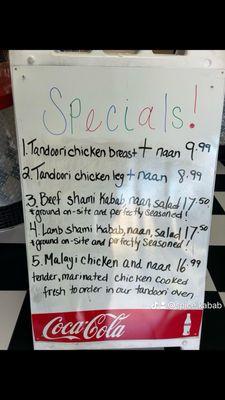 Specials!
1. Tandoori chicken breast + naan 9.99
2. Tandoori chicken leg + naan 8.99
3. Beef shami kabab, naan, salad 17.50
+ ground on-site and perfectly seasoned!
4. Lamb shami kabab, naan, salad 17.50
+ ground on-site and perfectly seasoned!
5. Malayi chicken and naan 16.99
tender, marinated chicken cooked
fresh to order in our tandoori oven
@spice.kabab
Coca-Cola